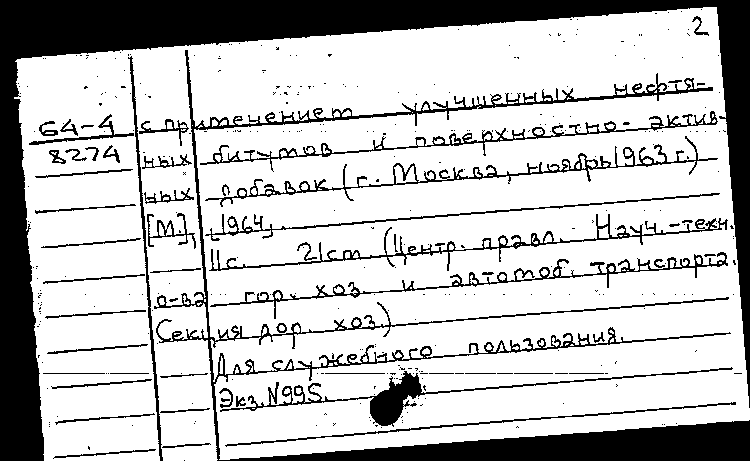 2
64-4 с применением улучшенных нефтя-
8274 ных битумов и поверхностно-актив-
ных добавок (г. Москва, ноябрь 1963 г.)
[М.], [1964].
11с. 21см (Центр. правл. Науч.-техн.
о-ва гор. хоз. и автомоб. транспорта.
Секция дор. хоз.)
Для служебного пользования.
Экз. N995.